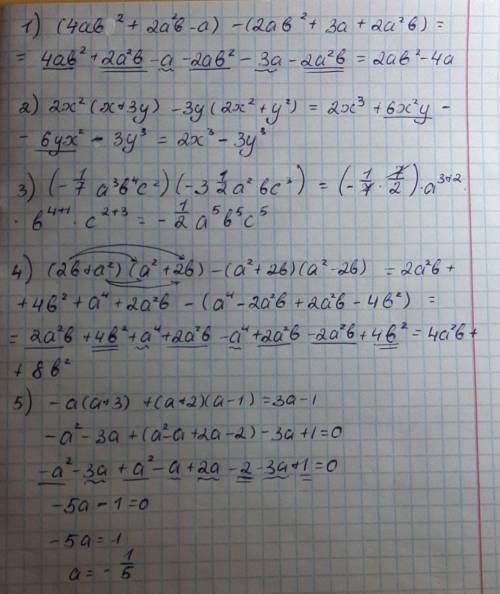 1) (4ab² + 2a²b - a) - (2ab² + 3a + 2a²b) =
= 4ab² + 2a²b - a - 2ab² - 3a - 2a²b = 2ab² - 4a
2) 2x²(x+3y) - 3y(2x² + y²) = 2x³ + 6x²y -
- 6yx² - 3y³ = 2x³ - 3y³
3) (-1/7 a³b⁴c²)(-3 1/2 a²bc³) = (-1/7 · 7/2) · a³⁺² ·
· b⁴⁺¹ · c²⁺³ = -1/2 a⁵b⁵c⁵
4) (2b + a²)(a² + 2b) - (a² + 2b)(a² - 2b) = 2a²b +
+ 4b² + a⁴ + 2a²b - (a⁴ - 2a²b + 2a²b - 4b²) =
= 2a²b + 4b² + a⁴ + 2a²b - a⁴ + 2a²b - 2a²b + 4b² = 4a²b +
+ 8b²
5) -a(a+3) + (a+2)(a-1) = 3a - 1
-a² - 3a + (a² - a + 2a - 2) - 3a + 1 = 0
-a² - 3a + a² - a + 2a - 2 - 3a + 1 = 0
-5a - 1 = 0
-5a = 1
a = -1/5